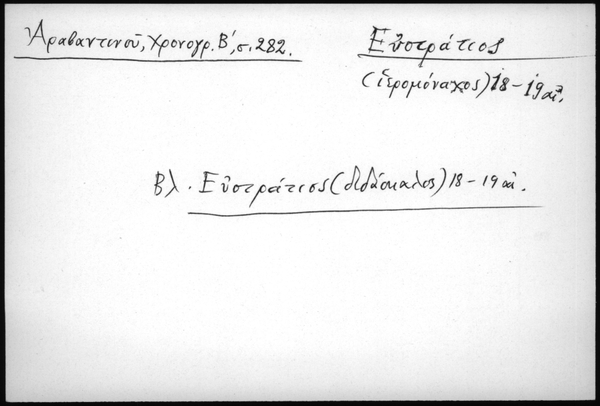 Ἀραβαντινοῦ, Χρονογρ. Β΄, σ. 282.
Εὐστράτιος
(ἱερομόναχος) 18 – 19 αἰ.
Βλ. Εὐστράτιος (διδάσκαλος) 18 – 19 αἰ.